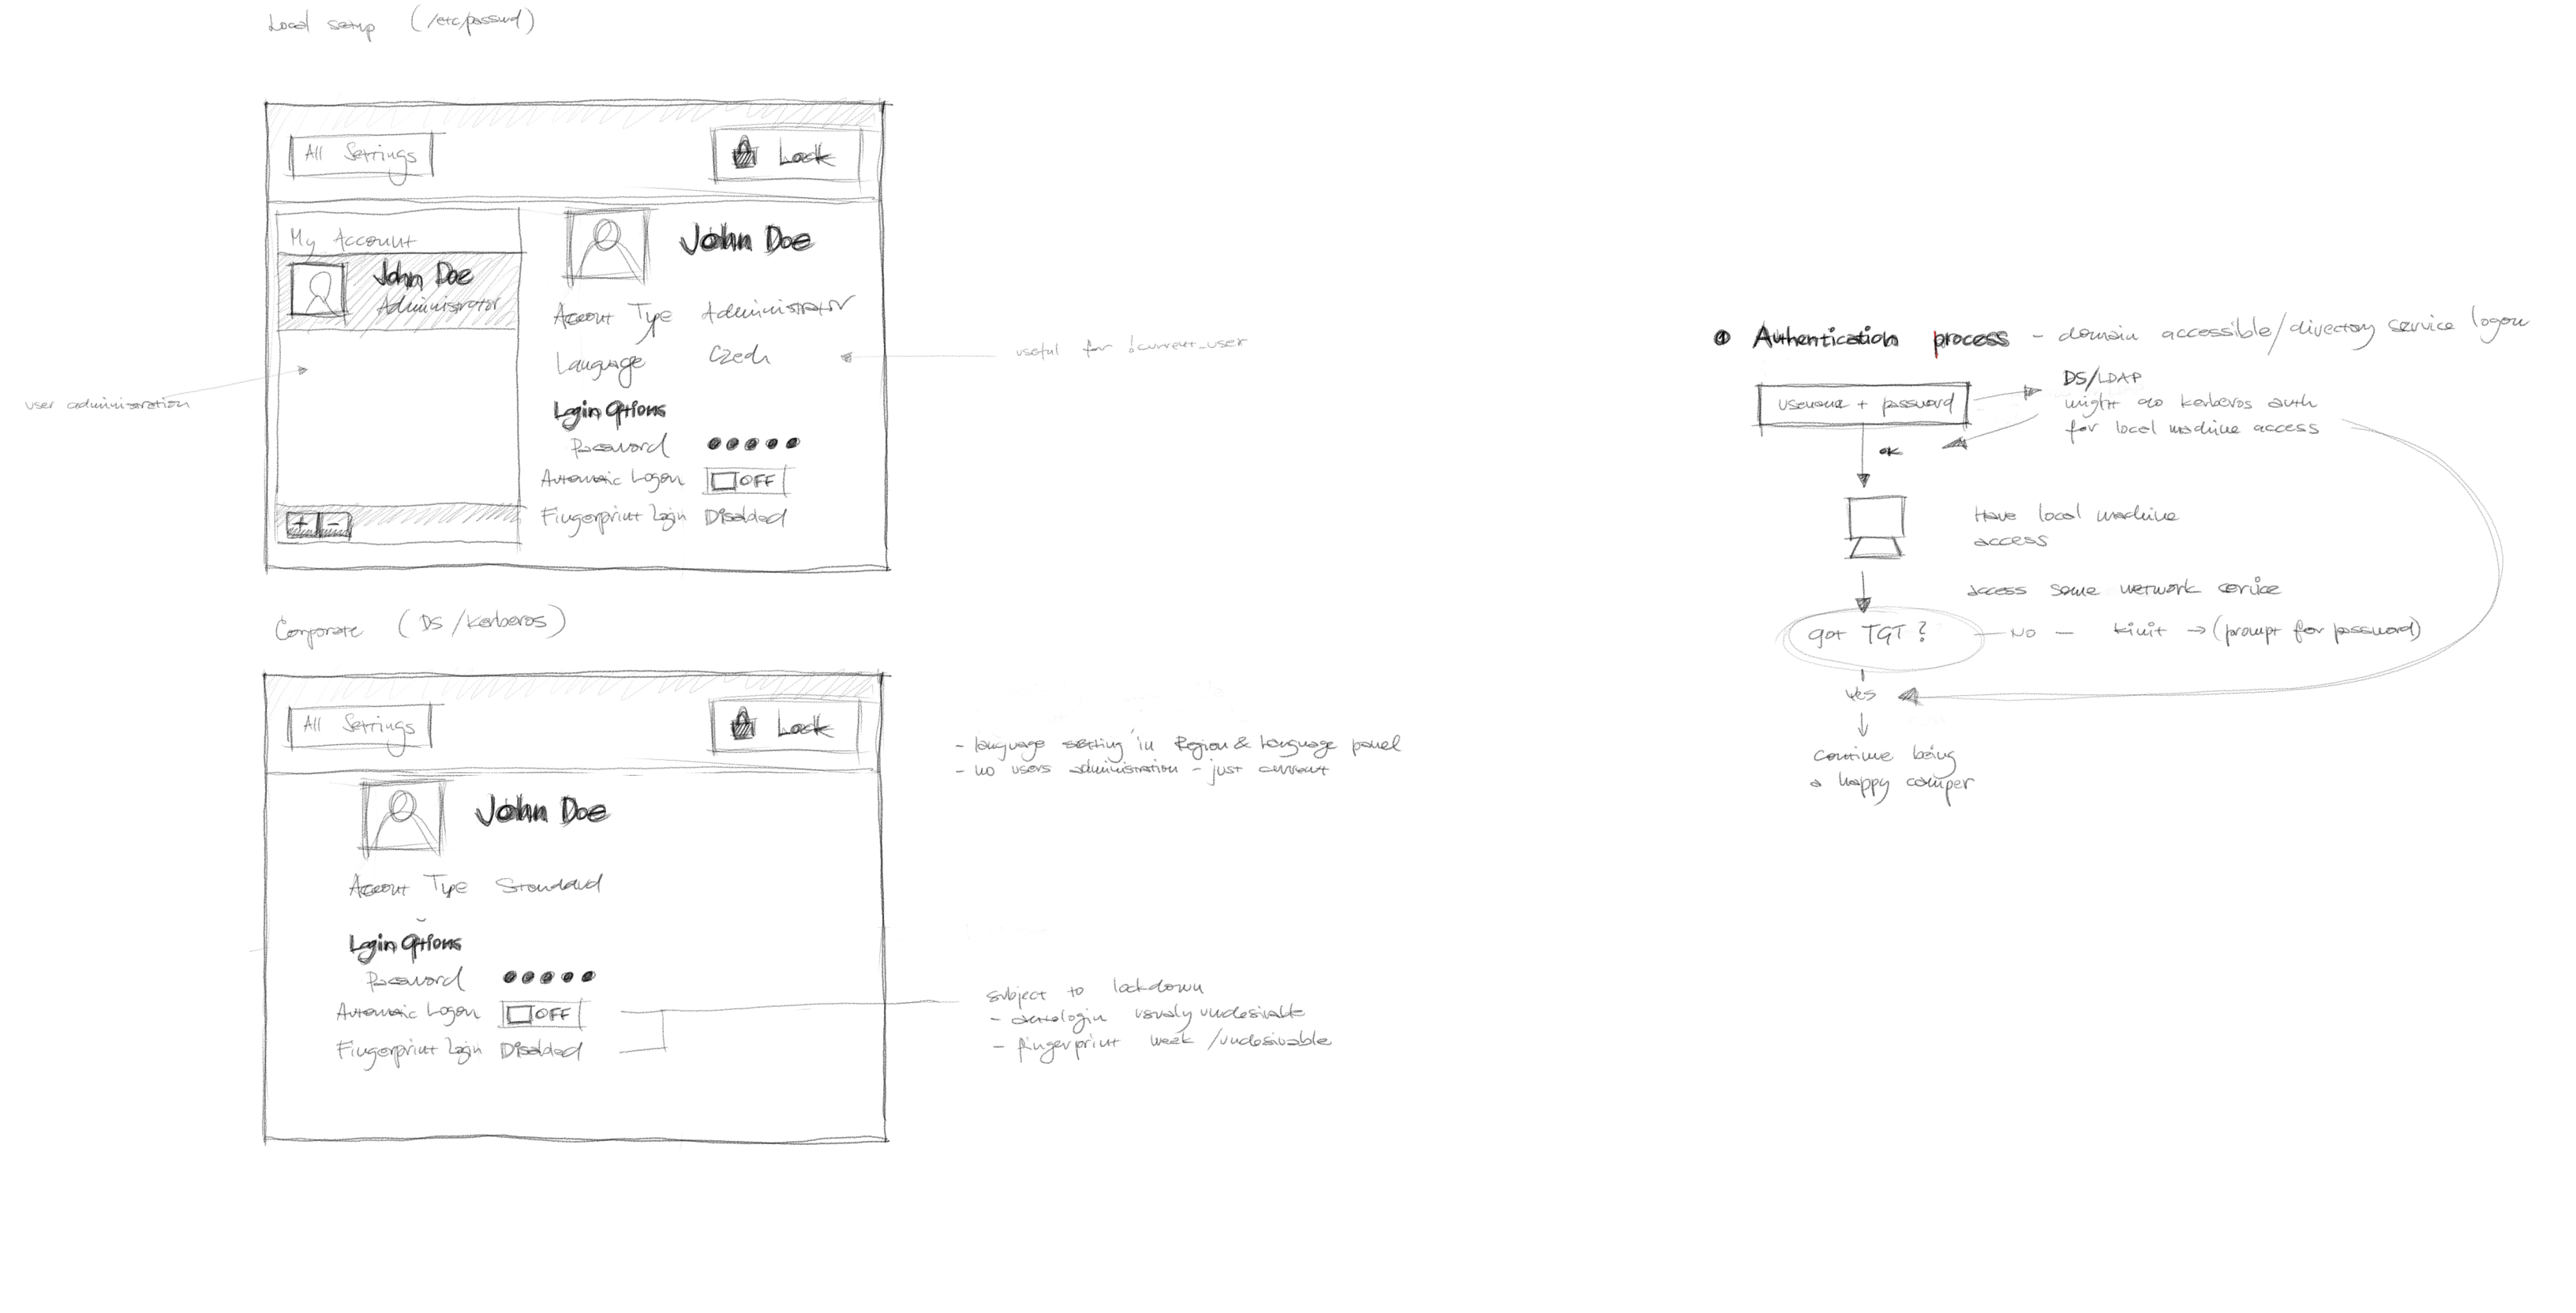 Local setup (/etc/passwd)
All Settings
Lock
My Account
John Doe
Administrator
+ -
John Doe
Account Type Administrator
Language Czech
Login Options
Password ●●●●●
Automatic Logon OFF
Fingerprint Login Disabled
user administration
useful for !current_user
Corporate (DS/Kerberos)
All Settings
Lock
John Doe
Account Type Standard
Login Options
Password ●●●●●
Automatic Logon OFF
Fingerprint Login Disabled
- language setting in Region & Language panel
- no users administration - just current
subject to lockdown
- autologin usualy undesirable
- fingerprint weak /undesirable
1 Authentication process - domain accessible/directory service logon
username + password
DS/LDAP
might do kerberos auth
for local machine access
OK
Have local machine
access
access some network service
got TGT?
- NO - kinit → (prompt for password)
Yes
Continue being
a happy camper